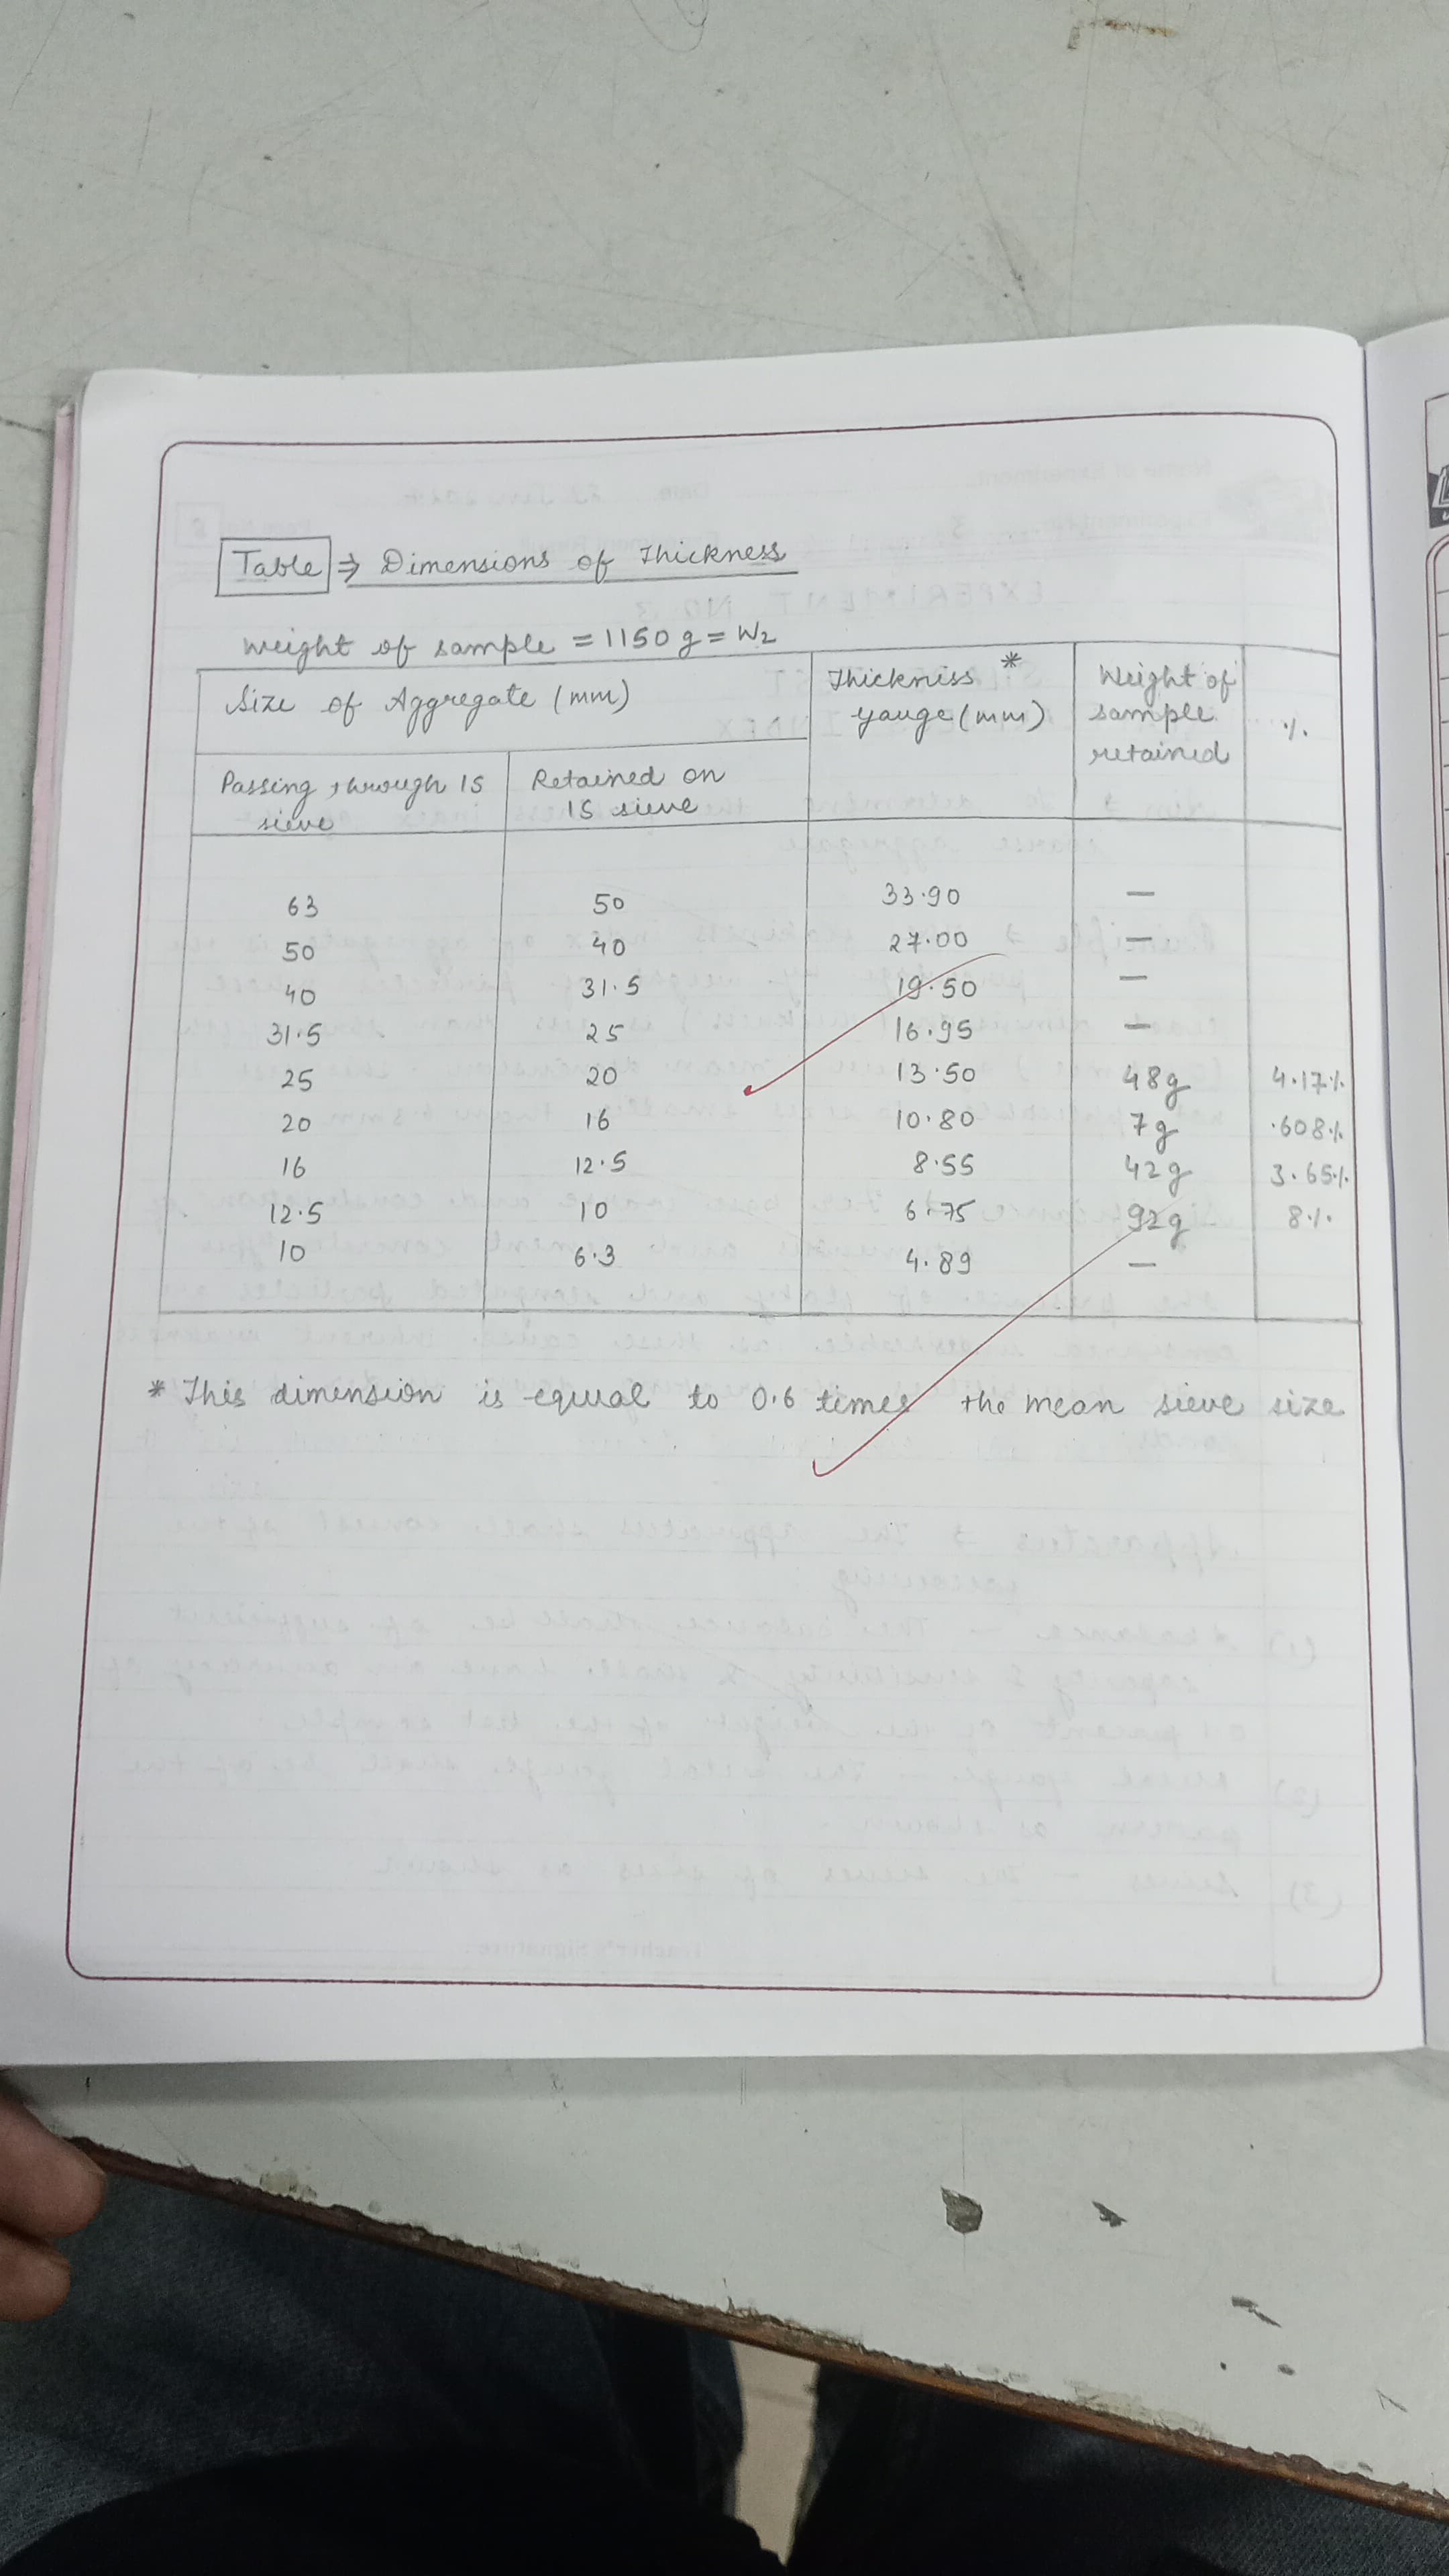 Table ⇒ Dimensions of Thickness
Weight of sample = 1150 g = W2
Size of Aggregate (mm) Thickniss * gauge (mm) Weight of sample retained %
Passing through IS sieve Retained on IS sieve
63 50 33.90 —
50 40 27.00 —
40 31.5 19.50 —
31.5 25 16.95 —
25 20 13.50 48g 4.17%
20 16 10.80 7g .608%
16 12.5 8.55 42g 3.65%
12.5 10 6.75 92g 8%
10 6.3 4.89 —
* This dimension is equal to 0.6 times the mean sieve size